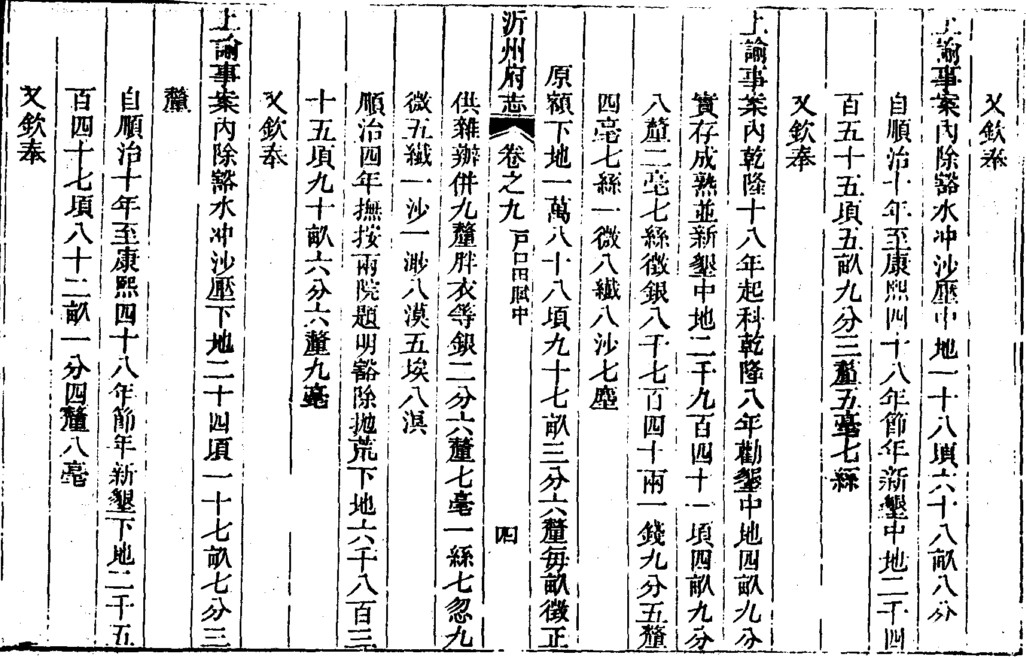 又欽奉
上諭事案內除豁水冲沙壓中地一十八頃六十八畝八分
自順治十年至康熙四十八年節年新墾中地二千四
百五十五頃五畝九分三釐五毫七絲
又欽奉
上諭事案內乾隆十八年起科乾隆八年勸墾中地四畝九分
實存成熟並新墾中地二千九百四十一頃四畝九分
八釐二毫七絲徵銀八千七百四十兩一錢九分五釐
四毫七絲一微八纖八沙七塵
原額下地一萬八十八頃九十七畝三分六釐每畝徵正
沂州府志 卷之九 戶口田賦中 四
供雜辦併九釐胖衣等銀二分六釐七毫一絲七忽九
微五纖一沙一渺八漠五埃八溟
順治四年撫按兩院題明豁除拋荒下地六千八百三
十五頃九十畝六分六釐九毫
又欽奉
上諭事案內除豁水冲沙壓下地二十四頃一十七畝七分三
釐
自順治十年至康熙四十八年節年新墾下地二千五
百四十七頃八十二畝一分四釐八毫
又欽奉